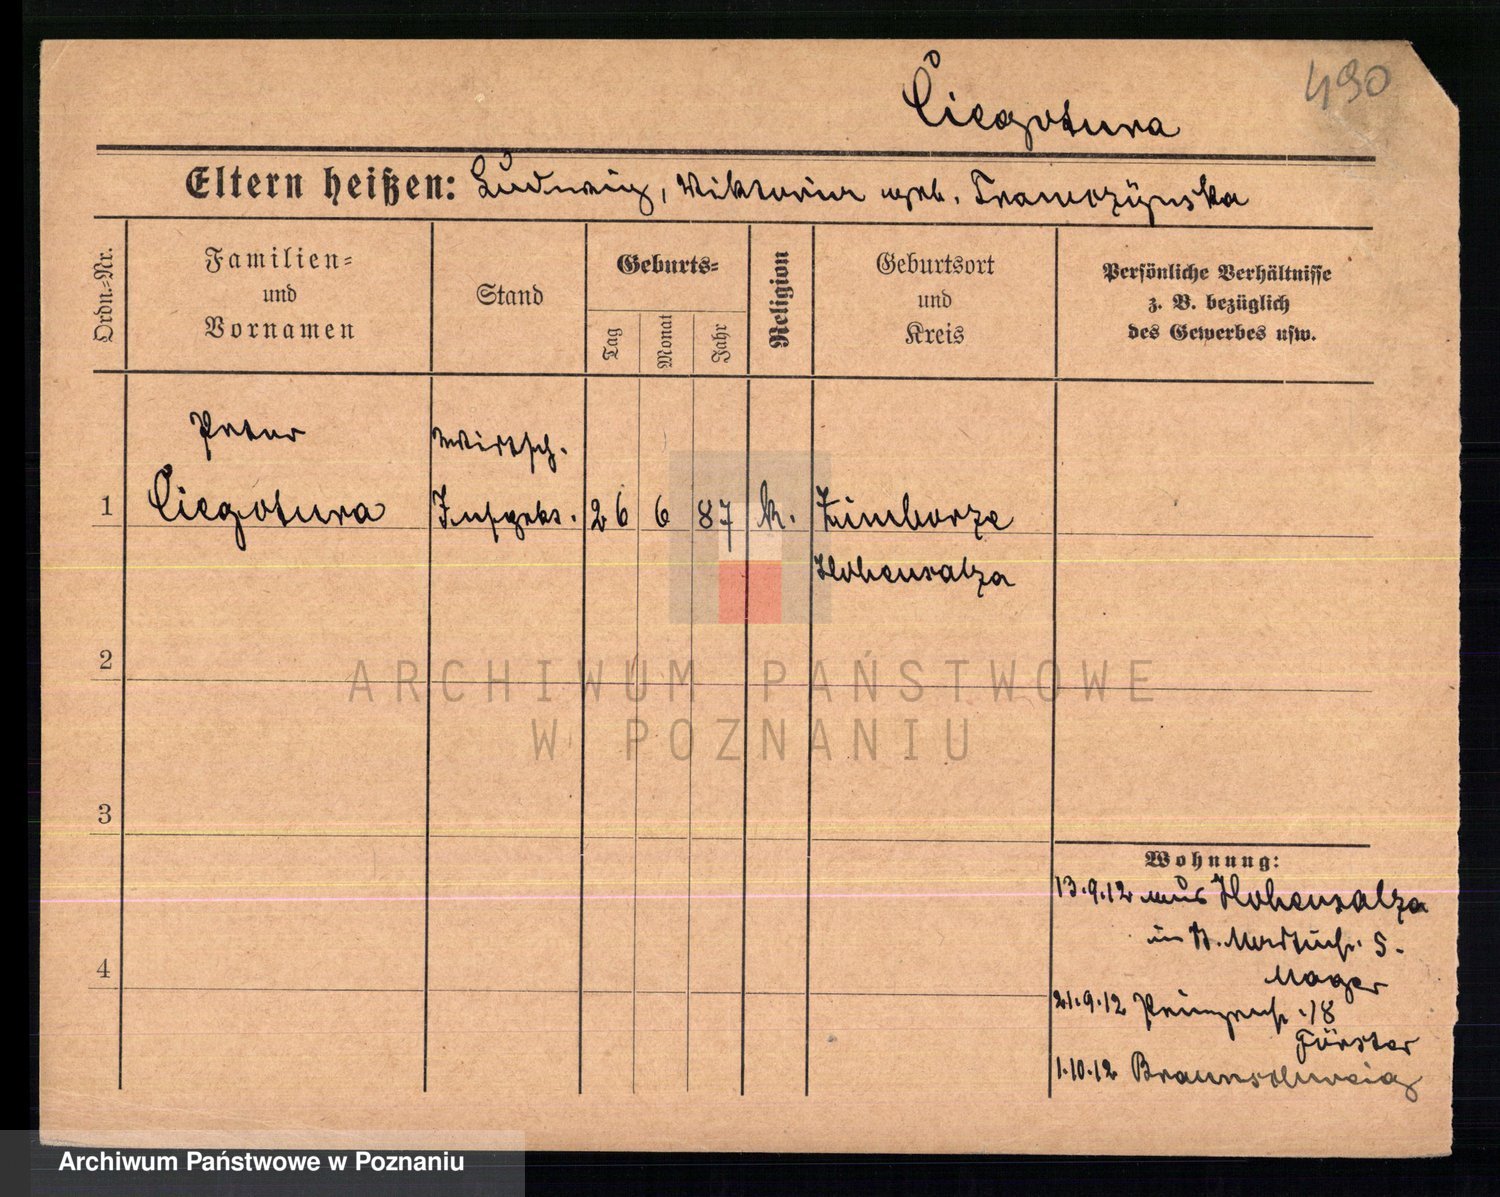 490
Ciegotura
Eltern heißen: Ludwig, Viktoria geb. Tramczÿnska
Ordn.-Nr.
Familien-
und
Vornamen
Stand
Geburts-
Tag
Monat
Jahr
Religion
Geburtsort
und
Kreis
Persönliche Verhältnisse
z. B. bezüglich
des Gewerbes usw.
Peter
Wirtsch.
1 Ciegotura Inspekt. 26 6 87 k.
Hohensalza
2
3
4
Wohnung:
13.9.12 aus Hohensalza
in St. Martinstr. 5.
Mager
21.9.12 Prinzenstr. 18
Förster
1.10.12 Braunschweig
ARCHIWUM PAŃSTWOWE
W POZNANIU
Archiwum Państwowe w Poznaniu